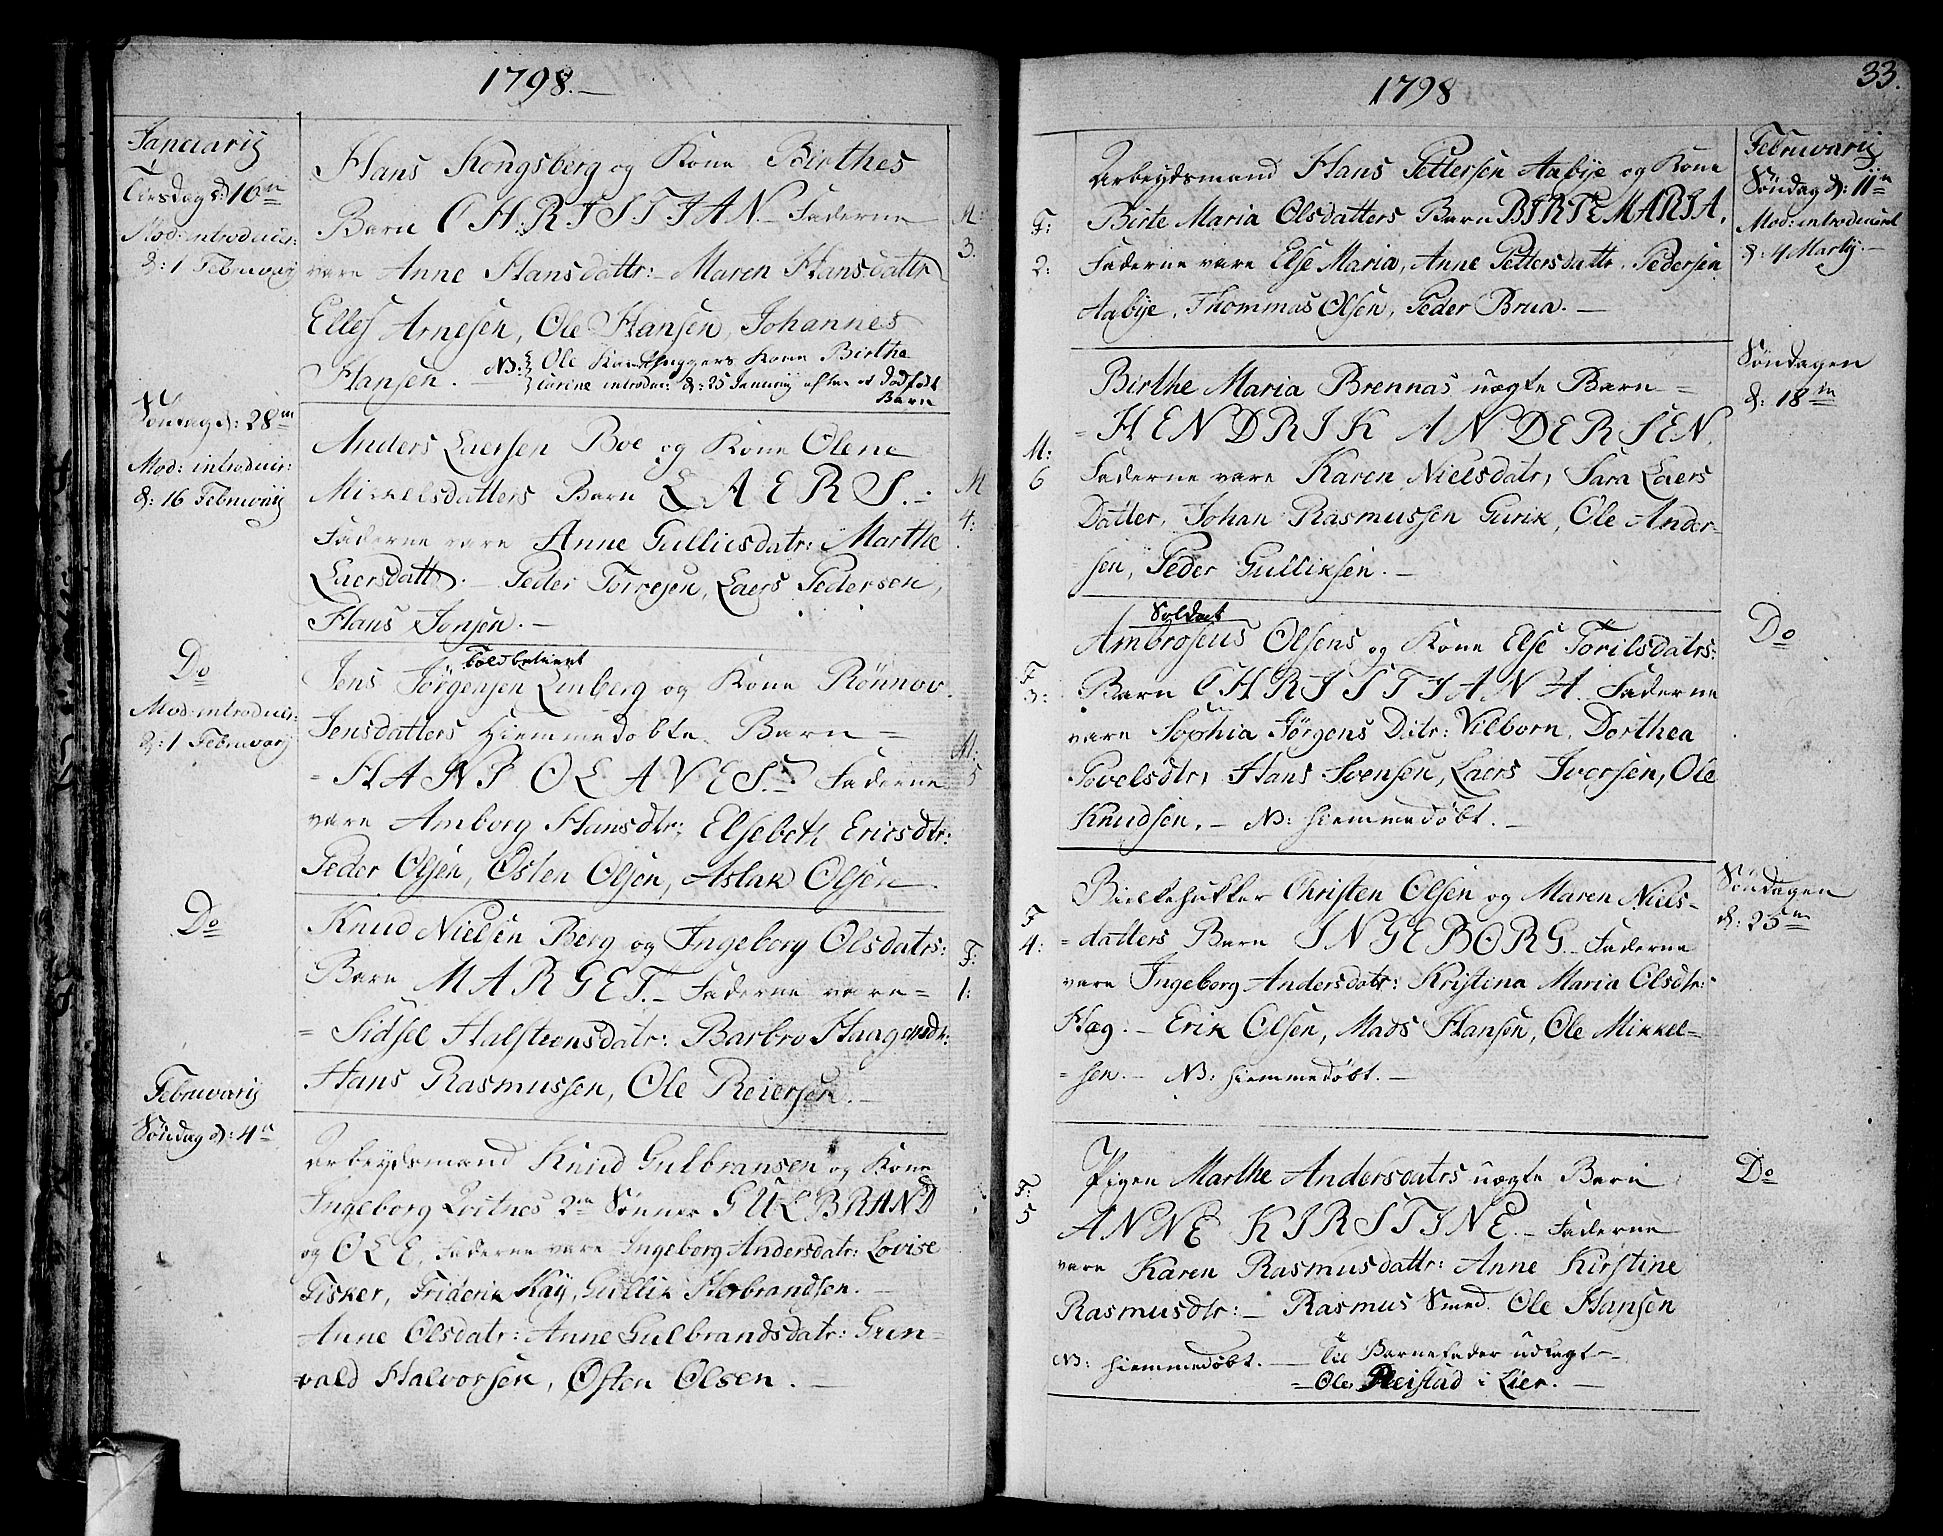 1798.
Januarij
Tirsdag d: 16n
Mod: introducir:
d: 1 Februarij
Hans Kongsberg og Kone Birthes
Barn CHRISTIAN. Faderne
vare Anne Hansdattr: Maren Hansdattr
Elles Arnesen, Ole Hansen, Johannes
Hansen. NB: Ole Kones Kone Birthe
introdu: d: 25 Januarij efter et Dødfødt
Barn
M:
3.
Søntag d: 28n
Mod: introducir:
d: 16 Februarij
Anders Laersen Boe og Kone Olene
Mikkelsdatters Barn LAERS.
Faderne vare Anne Gulliesdatr: Marthe
Laersdattr. Peder Torresen, Laers Pedersen,
Hans Jonsen.
M
4:
Do
Mod: introducir:
d: 1 Februarij
Toldbetient
Jens Jörgensen Linberg og Kone Rönnov
Jensdatters Hiemmedøbte Barn =
= HANS OLAVES. Faderne
vare Amborg Hansdtr; Elsebeth Ericsdtr:
Peder Olsen, Østen Olsen, Aslak Olsen.
M:
5
Do
Knud Nielsen Berg og Ingeborg Olsdatrs:
Barn MARGET. Faderne vare =
= Sidsel Halsteensdatr: Barbro Haagensdtr:
Hans Rasmussen, Ole Reiersen.
F:
1:
Februarij
Søndag d: 4n
Arbeydsmand Knud Gulbransen og Kone
Ingeborg Qvitnes 2de Sønner GULBRAND
og OLE, Faderne vare Ingeborg Andersdatr: Lovise
Fisker, Friderik Kay, Gullik Herbrandsen.
Anne Olsdatr: Anne Gulbrandsdatr: Grun-
vald Halvorsen, Østen Olsen.
1798
33.
F:
2:
Arbeydsmand Hans Pettersen Aabye og Kone
Birte Maria Olsdatters Barn BIRTE MARIA,
Faderne vare Else Maria, Anne Pettersdattr. Pedersen
Aabye, Thommas Olsen, Peder Brua.
Februarij
Søndag d: 11n
Mod: introduciret
d: 4 Martij.
M:
6
Birthe Maria Brennas uægte Barn =
= HENDRIK ANDERSEN
Faderne vare Karen Nielsdatr, Sara Laers
Datter, Johan Rasmussen Gurik, Ole Ander-
= sen, Peder Gulliksen.
Søndagen
d: 18n
F
3:
Soldat
Ambrosius Olsens og Kone Else Torilsdatrs:
Barn CHRISTIANA. Faderne
vare Sophia Jörgens Datr: Vilborn, Dorthea
Povelsdtr, Hans Svensen, Laers Iversen, Ole
Knudsen. NB: Hiemmedøbt.
Do
F
4:
Bielkehukker Christen Olsen og Maren Niels-
= datters Barn INGEBORG. Faderne
vare Ingeborg Andersdatr: Kristena Maria Olsdtr:
Hæg: Erik Olsen, Mads Hansen, Ole Mikkel=
= sen. NB: Hiemmedøbt.
Søndagen
d: 25n
F:
5
Pigen Marthe Andersdatrs uægte Barn
ANNE KIRSTINE. Faderne
vare Karen Rasmusdattr: Anne Kirstine
Rasmusdtr: Rasmus Smed. Ole Hansen
NB: Hiemmedøbt. Til Barnefader udlagt
= Ole Reistad i Lier.
Do